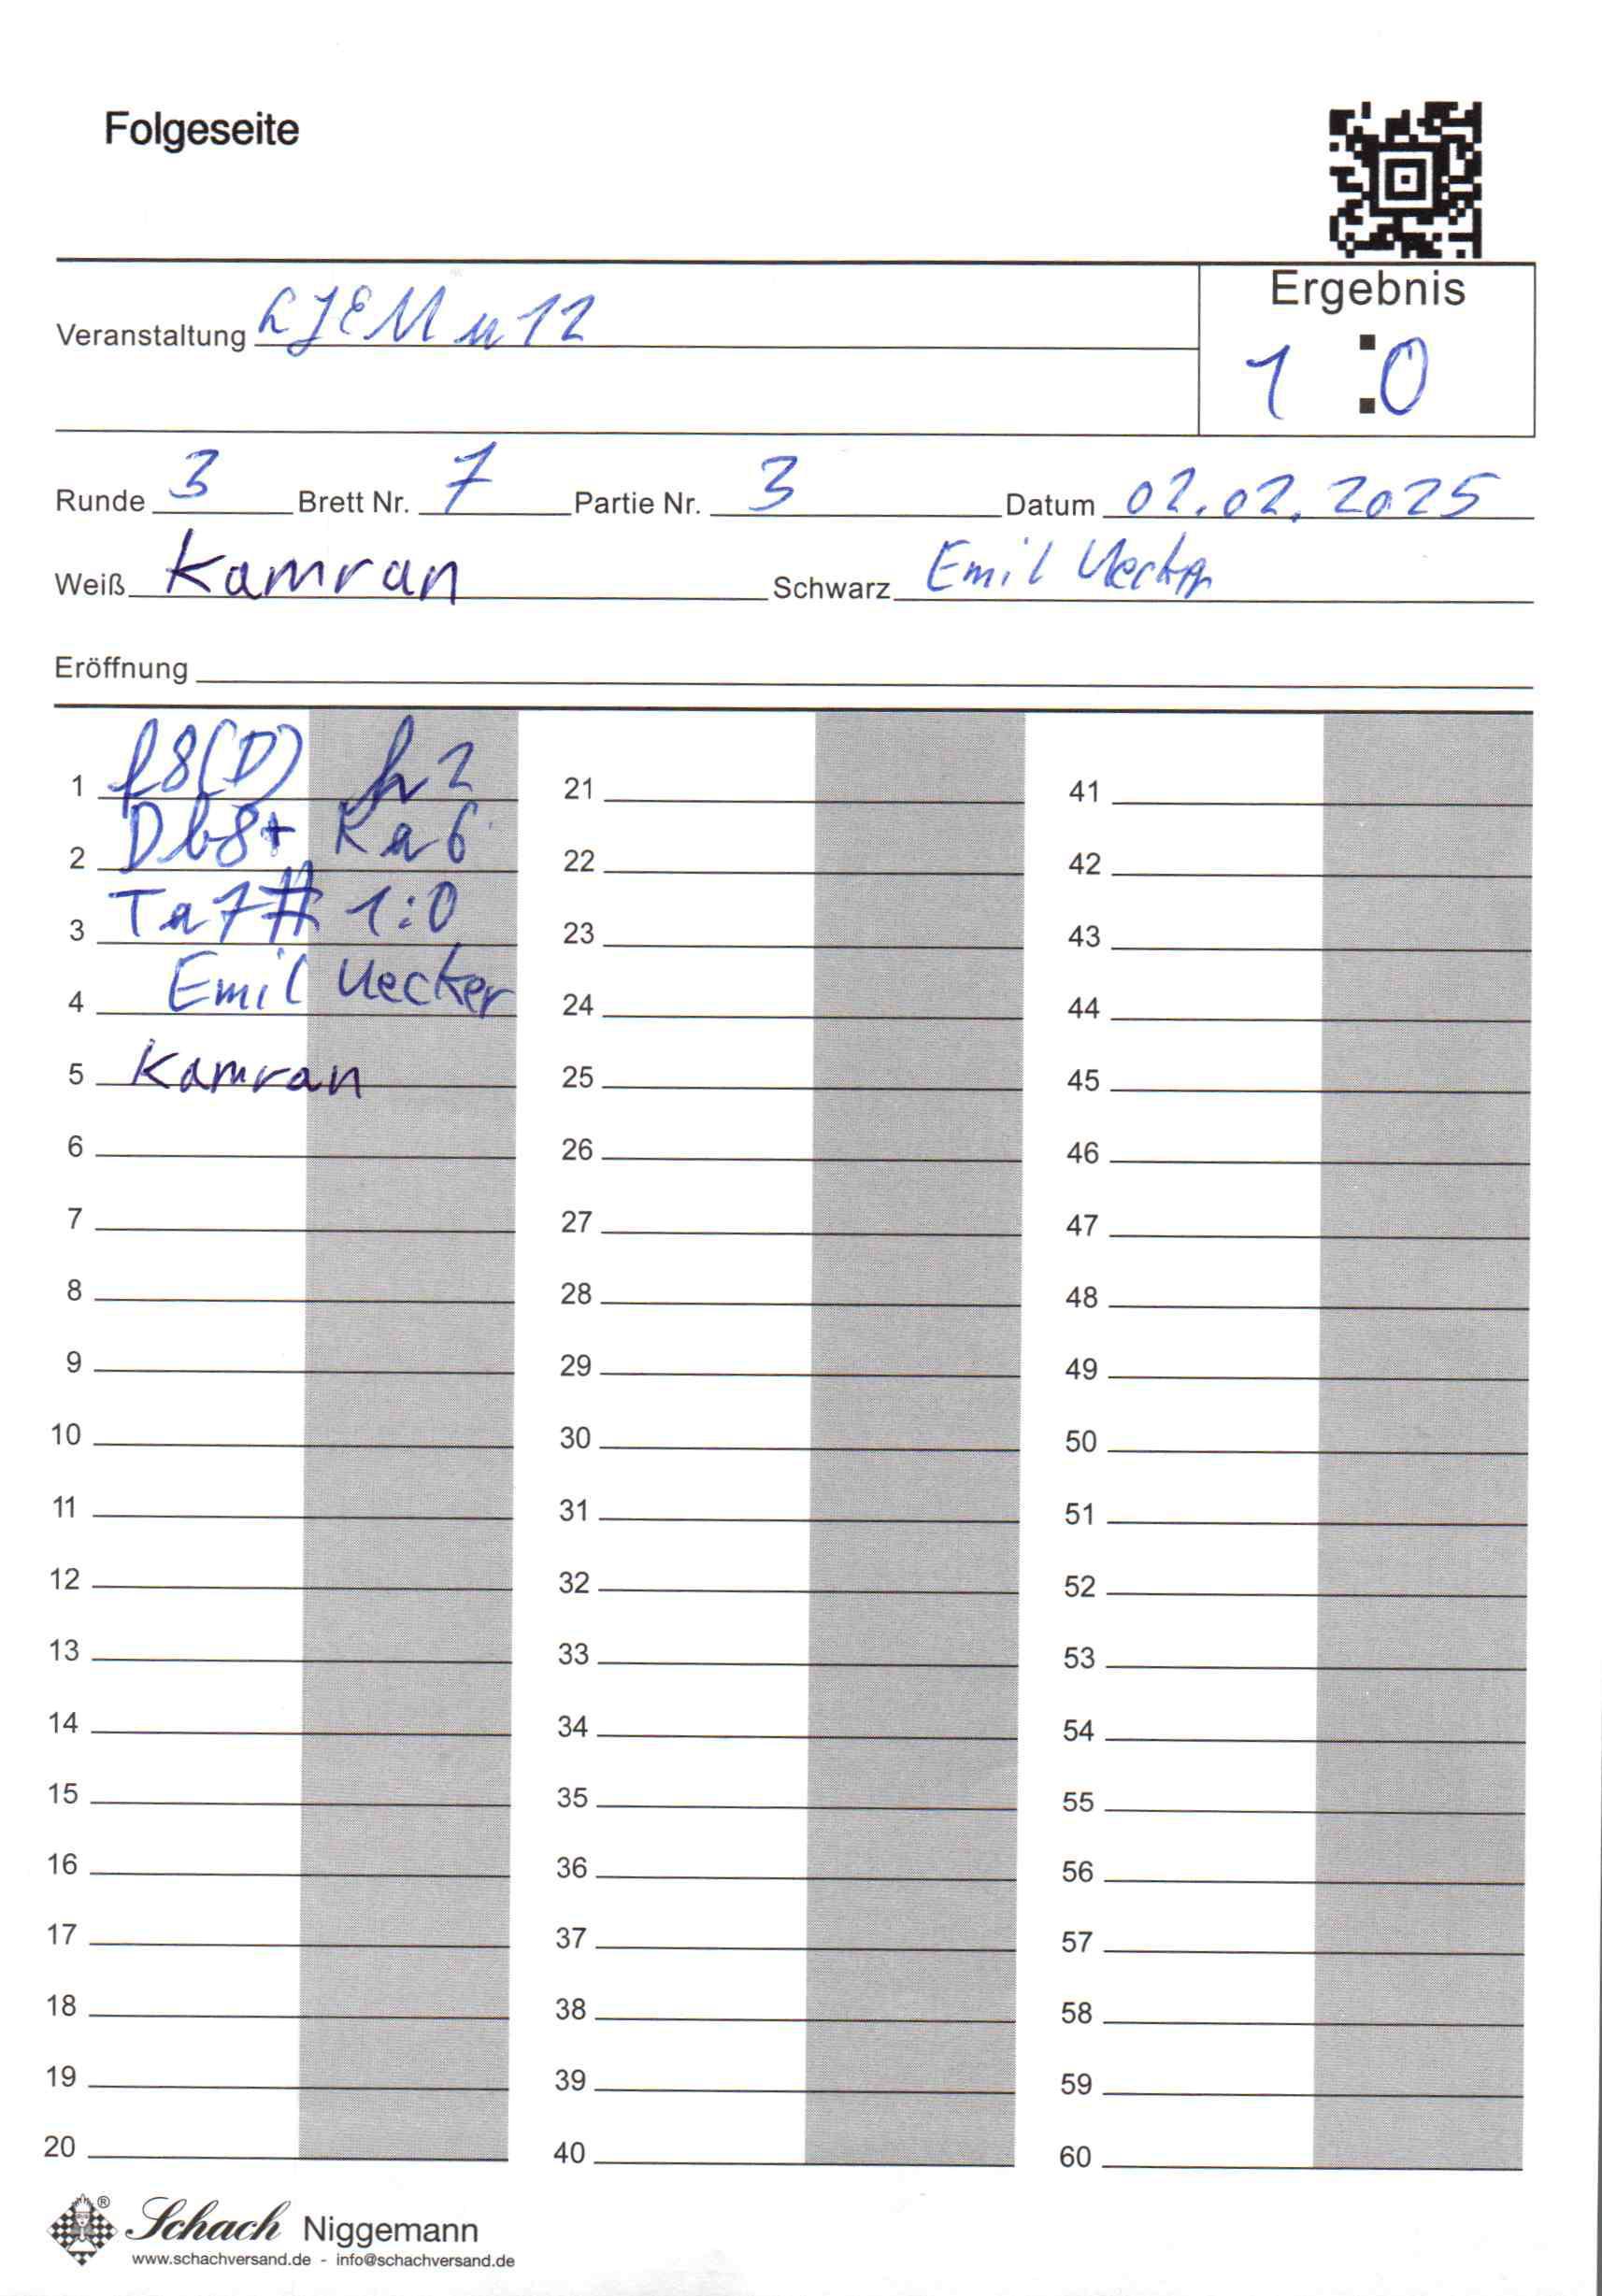 Folgeseite
Ergebnis
Veranstaltung LJEM u12
1 : 0
Runde 3 Brett Nr. 7 Partie Nr. 3 Datum 02.02.2025
Weiß Kamran Schwarz Emil Uecker
Eröffnung
1 f8(D) h2 21 41
2 Db8+ Ka6 22 42
3 Ta7# 1:0 23 43
4 Emil Uecker 24 44
5 Kamran 25 45
6 26 46
7 27 47
8 28 48
9 29 49
10 30 50
11 31 51
12 32 52
13 33 53
14 34 54
15 35 55
16 36 56
17 37 57
18 38 58
19 39 59
20 40 60
® Schach Niggemann
www.schachversand.de - info@schachversand.de